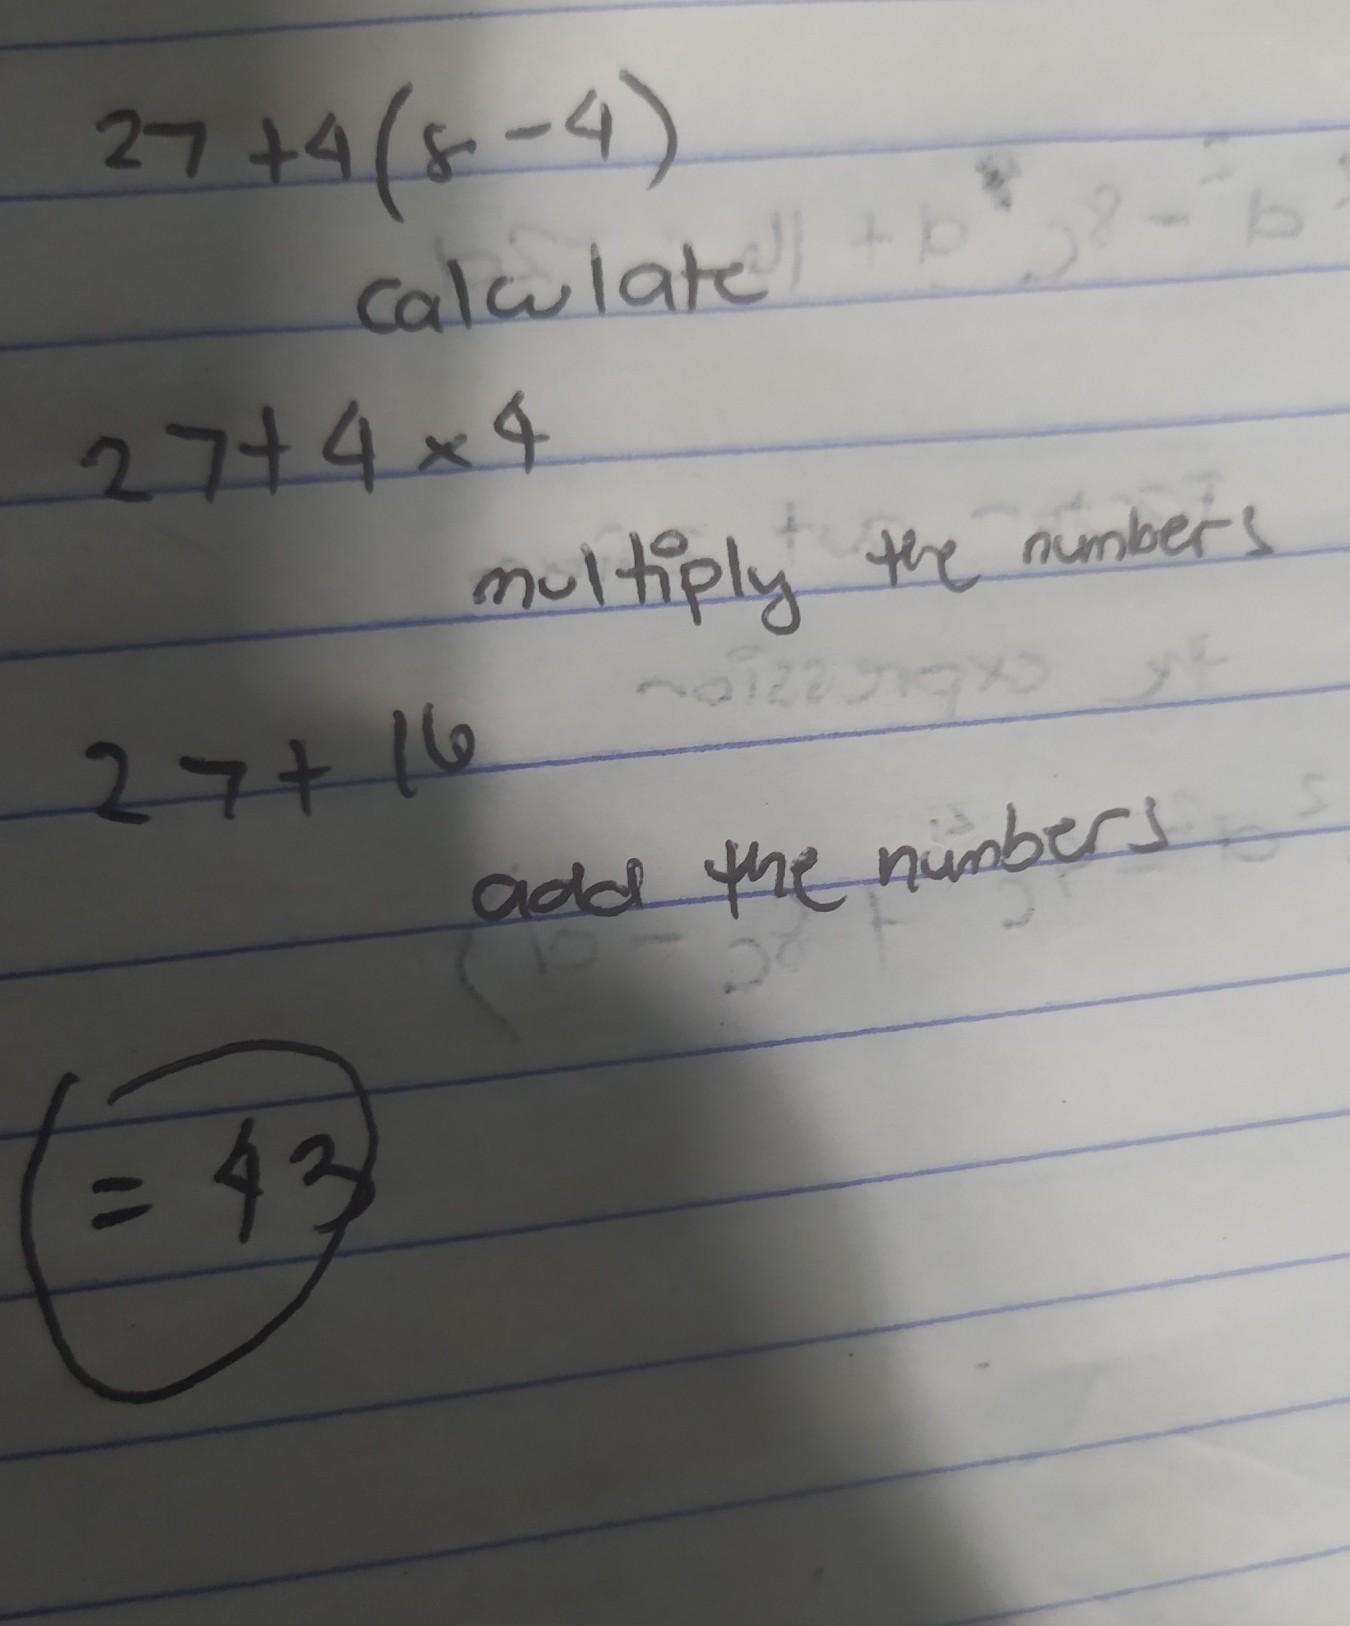 27 + 4(8 - 4)
calculate
27 + 4 × 4
multiply the numbers
27 + 16
add the numbers
= 43